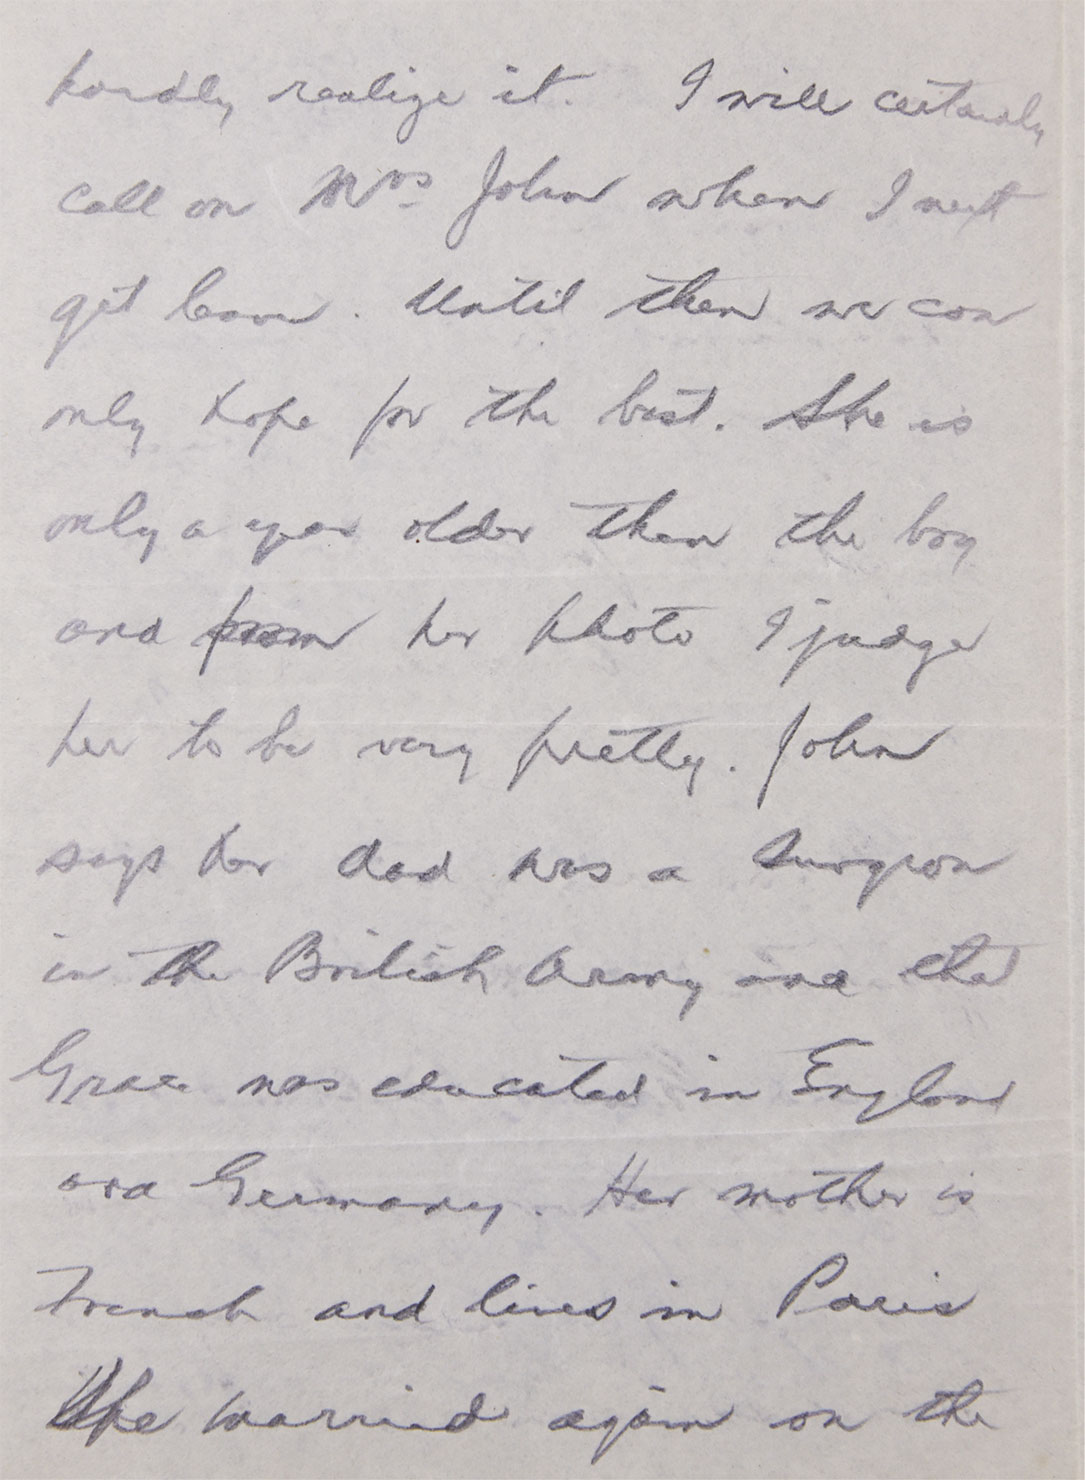 hardly realize it. I will certainly
call on Mrs. John when I next
get leave. Until then we can
only hope for the best. She is
only a year older than the boy
and from her photo I judge
her to be very pretty. John
says her dad was a surgeon
in the British Army and that
Grace was educated in England
and Germany. Her mother is
French and lives in Paris
She married again on the